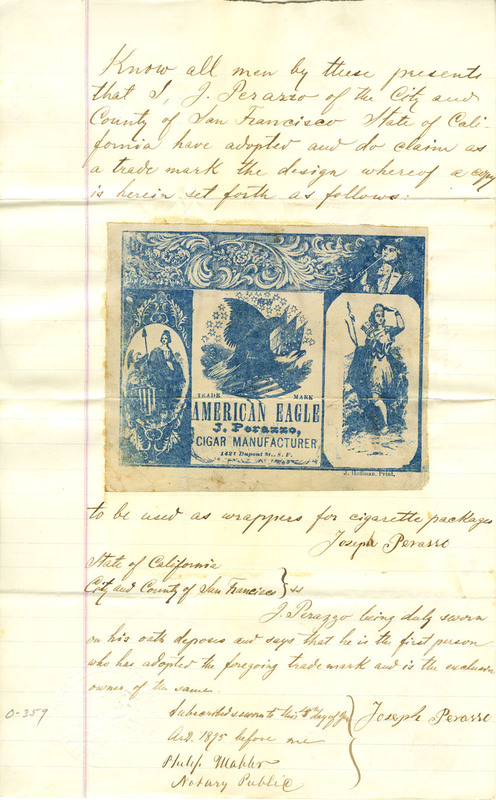 Know all men by these presents
that I, J. Perazzo of the City and
County of San Francisco State of Cali-
fornia have adopted and do claim as
a trade mark the design whereof a copy
is herein set forth as follows:
TRADE MARK
AMERICAN EAGLE
J. Perazzo,
CIGAR MANUFACTURER
1421 Dupont St., S. F.
J. Hoffman, Print.
to be used as wrappers for cigarette packages
Joseph Perasso
State of California
City and County of San Francisco } ss
J. Perazzo being duly sworn
on his oath deposes and says that he is the first person
who has adopted the foregoing trade mark and is the exclusive
owner of the same.
Subscribed & sworn to this 8th day of
A.D. 1875 before me
Joseph Perasso
Philip Mahler
Notary Public
0-359